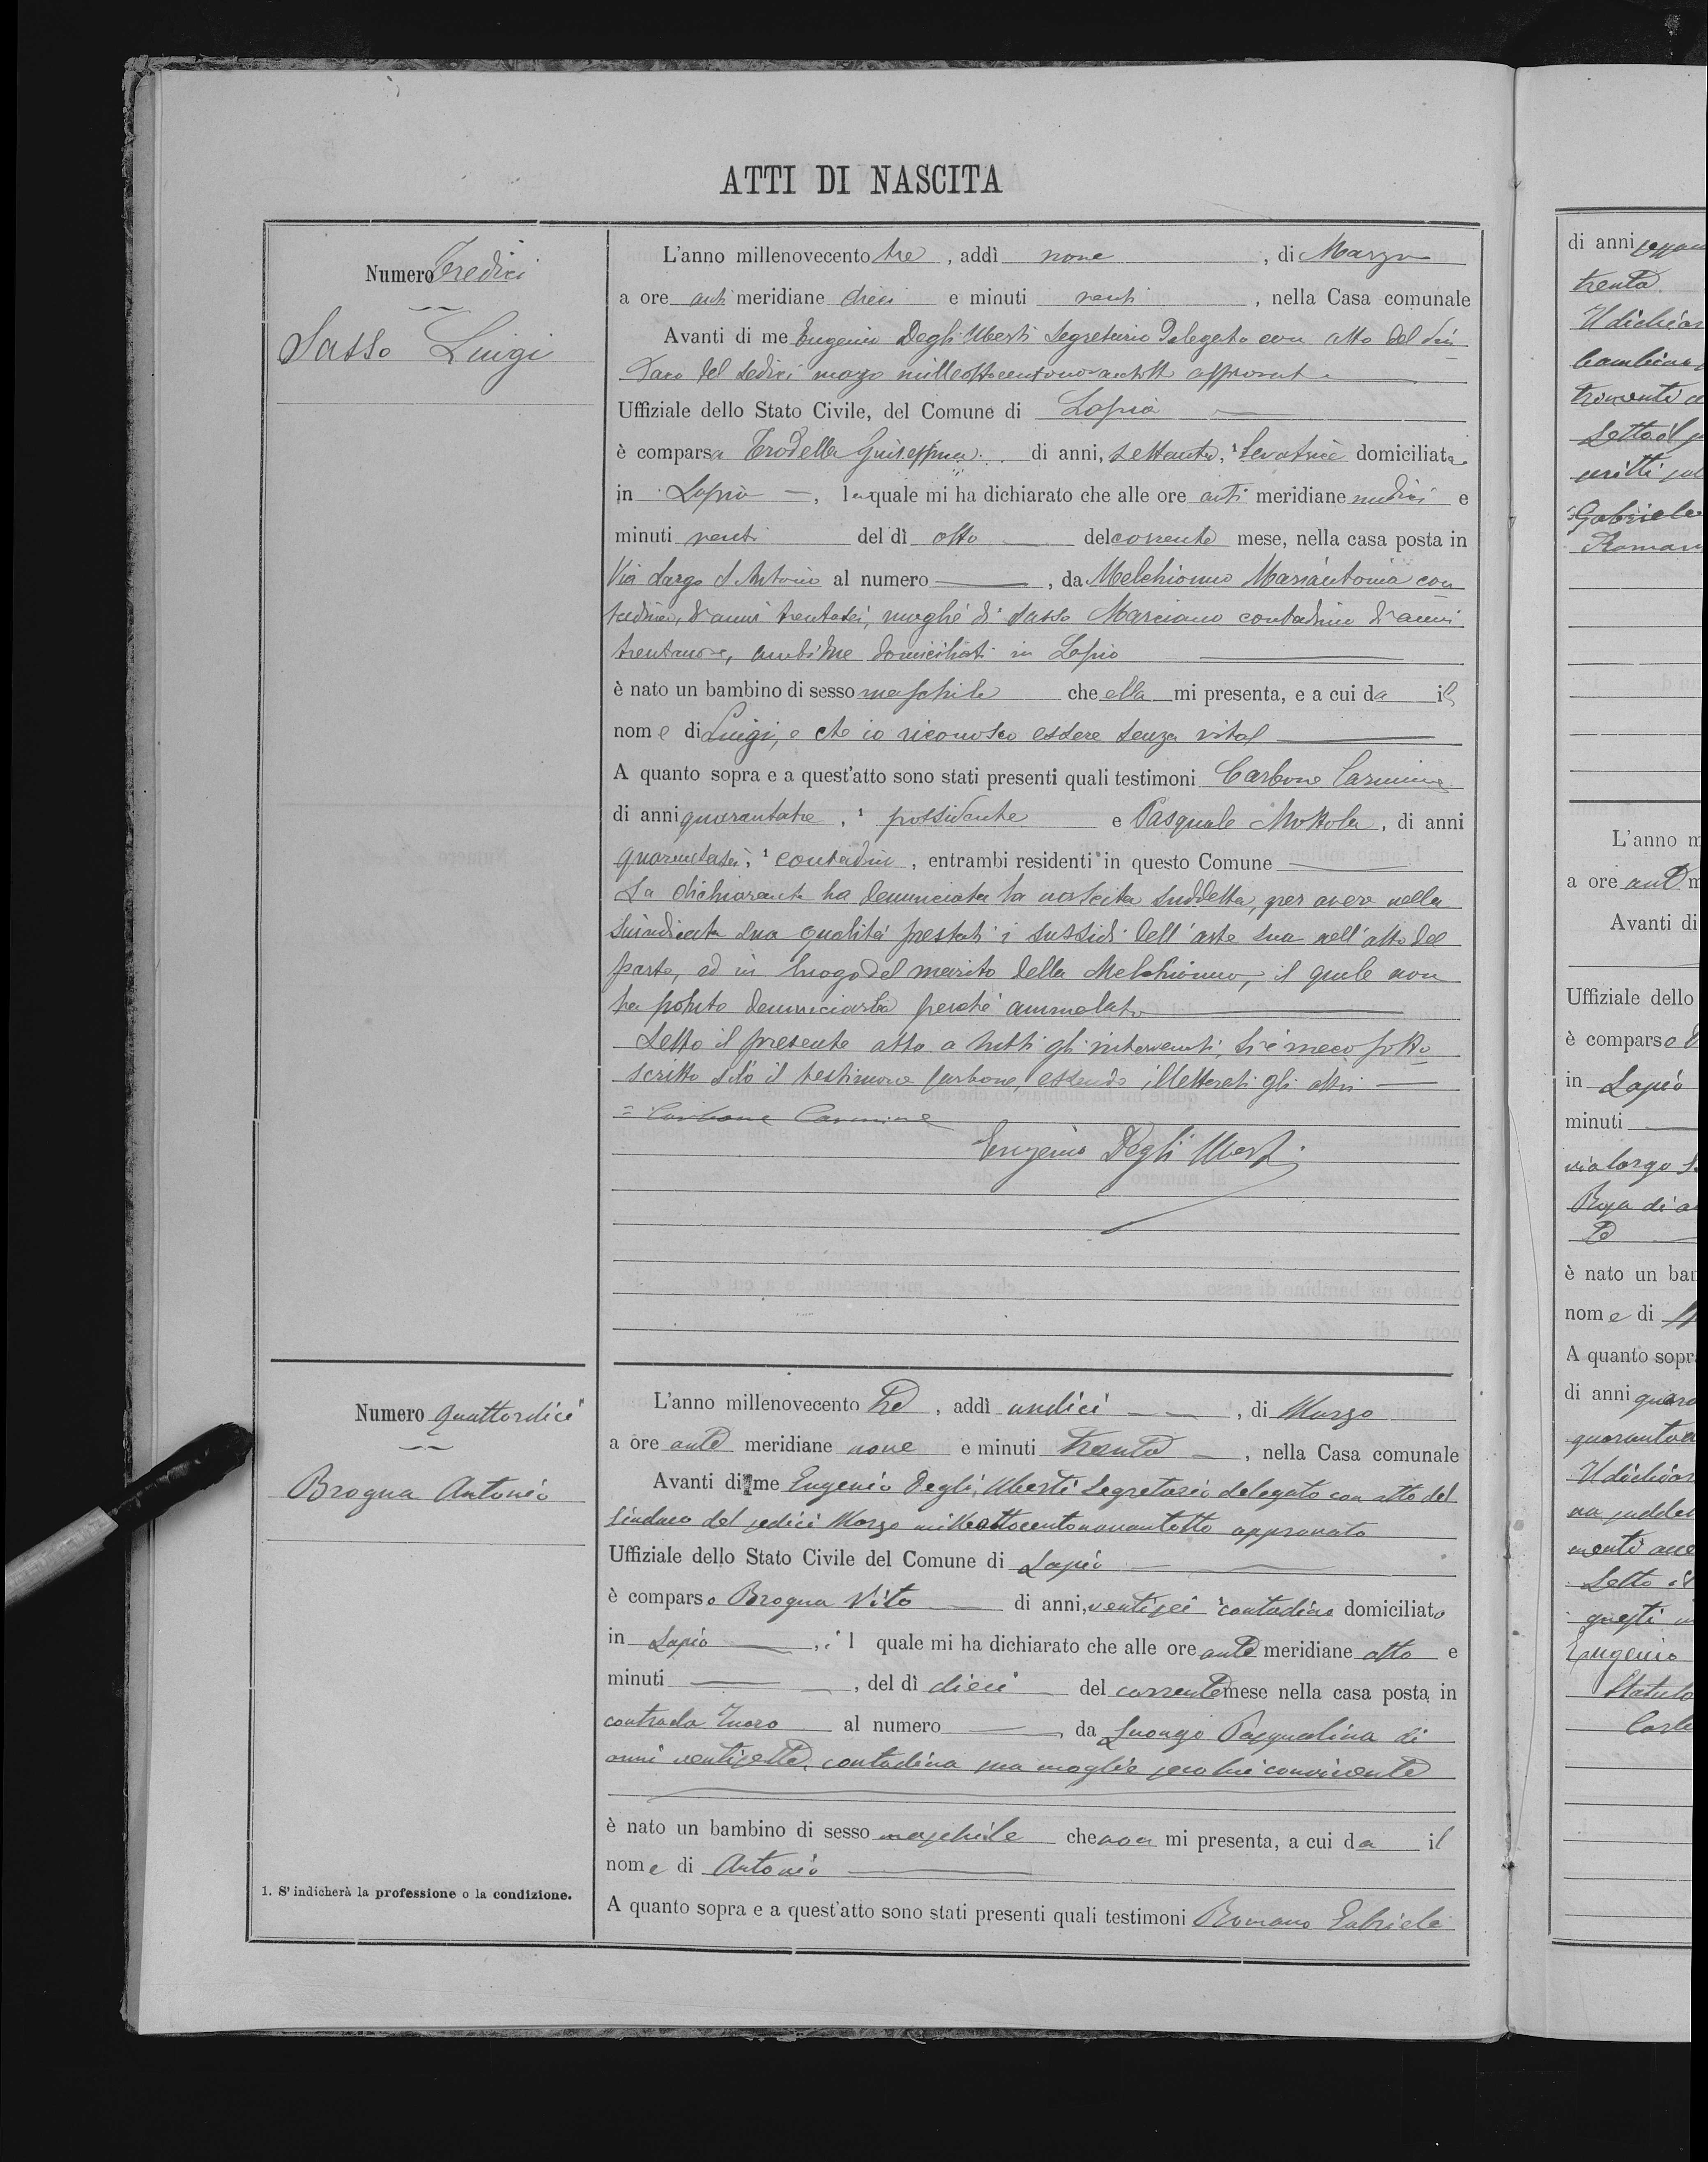 ATTI DI NASCITA
Numero Tredici
Sasso Luigi
L'anno millenovecento tre, addì nove, di Marzo
a ore anti meridiane dieci e minuti venti, nella Casa comunale
Avanti di me Eugenio Degli Uberti Segretario Delegato con atto del Sin
daco del sedici marzo milleottocentonovantotto approvato
Uffiziale dello Stato Civile, del Comune di Lapio
è comparsa Trodella Guiseppina di anni, settanta, 1 levatrice domiciliata
in Lapio, la quale mi ha dichiarato che alle ore anti meridiane undici e
minuti venti del dì otto del corrente mese, nella casa posta in
Via Largo S Antonio al numero —, da Melchionno Mariantonia con
tadina, d'anni trentasei, moglie di Sasso Marciano contadino d'anni
trentanove, ambidue domiciliati in Lapio
è nato un bambino di sesso maschile che ella mi presenta, e a cui da il
nome di Luigi, e che io riconosco essere senza vita
A quanto sopra e a quest'atto sono stati presenti quali testimoni Carbone Carmine
di anni quarantatre, 1 possidente e Pasquale Mottola, di anni
quarantasei, 1 contadino, entrambi residenti in questo Comune
La dichiarante ha denunciata la nascita suddetta, per avere nella
suindicata sua qualità prestati i sussidi dell'arte sua nell'atto del
parto, ed in luogo del marito della Melchionno, il quale non
ha potuto denunciarla perchè ammalato
Letto il presente atto a tutti gli intervenuti, si è meco sotto
scritto solo il testimone Carbone, essendo illetterati gli altri
= Carbone Carmine
Eugenio Degli Uberti
Numero quattordici
Brogna Antonio
L'anno millenovecento tre, addì undici, di Marzo
a ore ante meridiane nove e minuti trenta, nella Casa comunale
Avanti di me Eugenio Degli Uberti Segretario delegato con atto del
Sindaco del sedici Marzo milleottocentonovantotto approvato
Uffiziale dello Stato Civile del Comune di Lapio
è comparso Brogna Vito di anni, ventisei 1 contadino domiciliato
in Lapio, il quale mi ha dichiarato che alle ore ante meridiane otto e
minuti —, del dì dieci del corrente mese nella casa posta in
contrada al numero — da Luongo Pasqualina di
anni ventisette, contadina sua moglie seco lui convivente
è nato un bambino di sesso maschile che non mi presenta, a cui da il
nome di Antonio
A quanto sopra e a quest'atto sono stati presenti quali testimoni Romano Gabriele
1. S'indicherà la professione o la condizione.
di anni
trenta
Il dichiar
bambino
Letto il
Gabriele
Roman
L'anno m
a ore ante m
Avanti di
Uffiziale dello
è comparso
in Lapio
minuti
via largo S
Rosa di a
è nato un bam
nome di
A quanto sopra
di anni quara
quaranta
Il dichiar
Letto il
questi
Eugenio